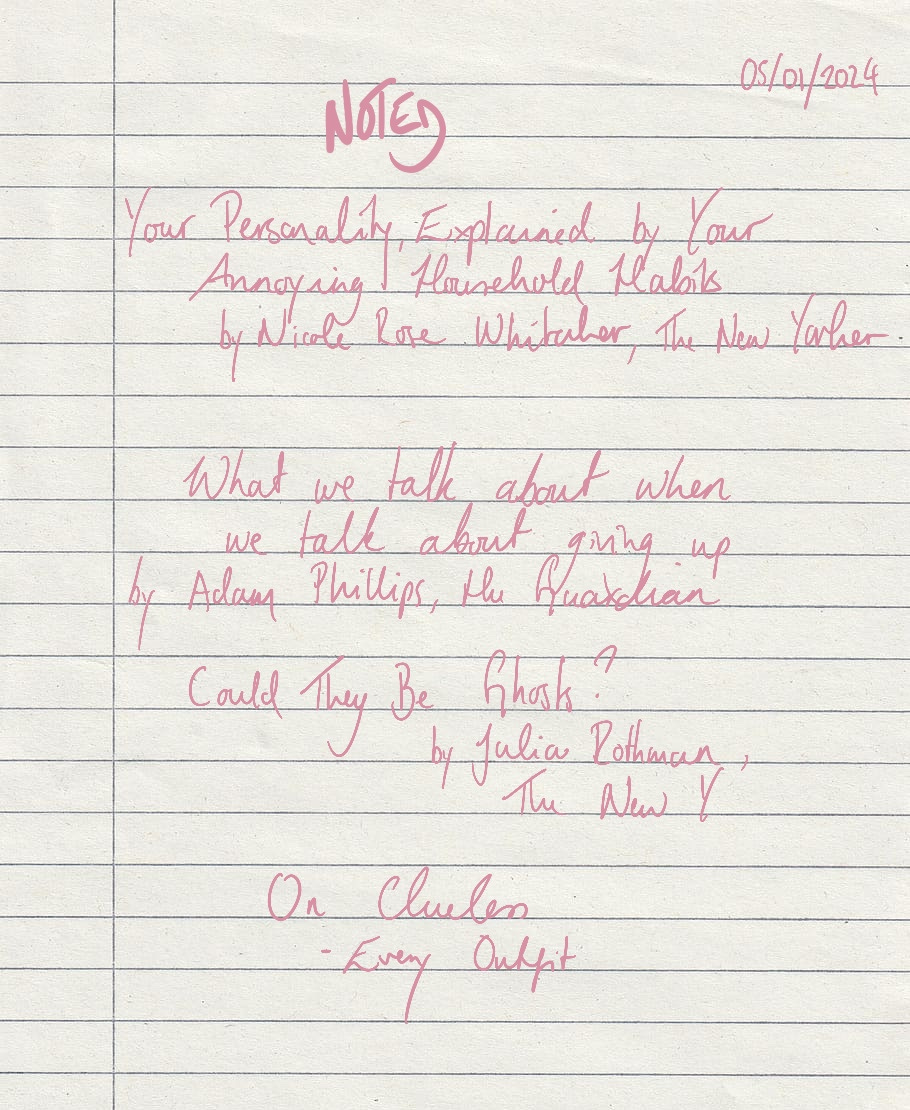 05/01/2024
NOTED
Your Personality, Explained by Your
Annoying Household Habits
by Nicole Rose Whitaker, The New Yorker
What we talk about when
we talk about giving up
by Adam Phillips, the Guardian
Could They Be Ghosts?
by Julia Rothman,
The New Y
On Clueless
- Every Outfit